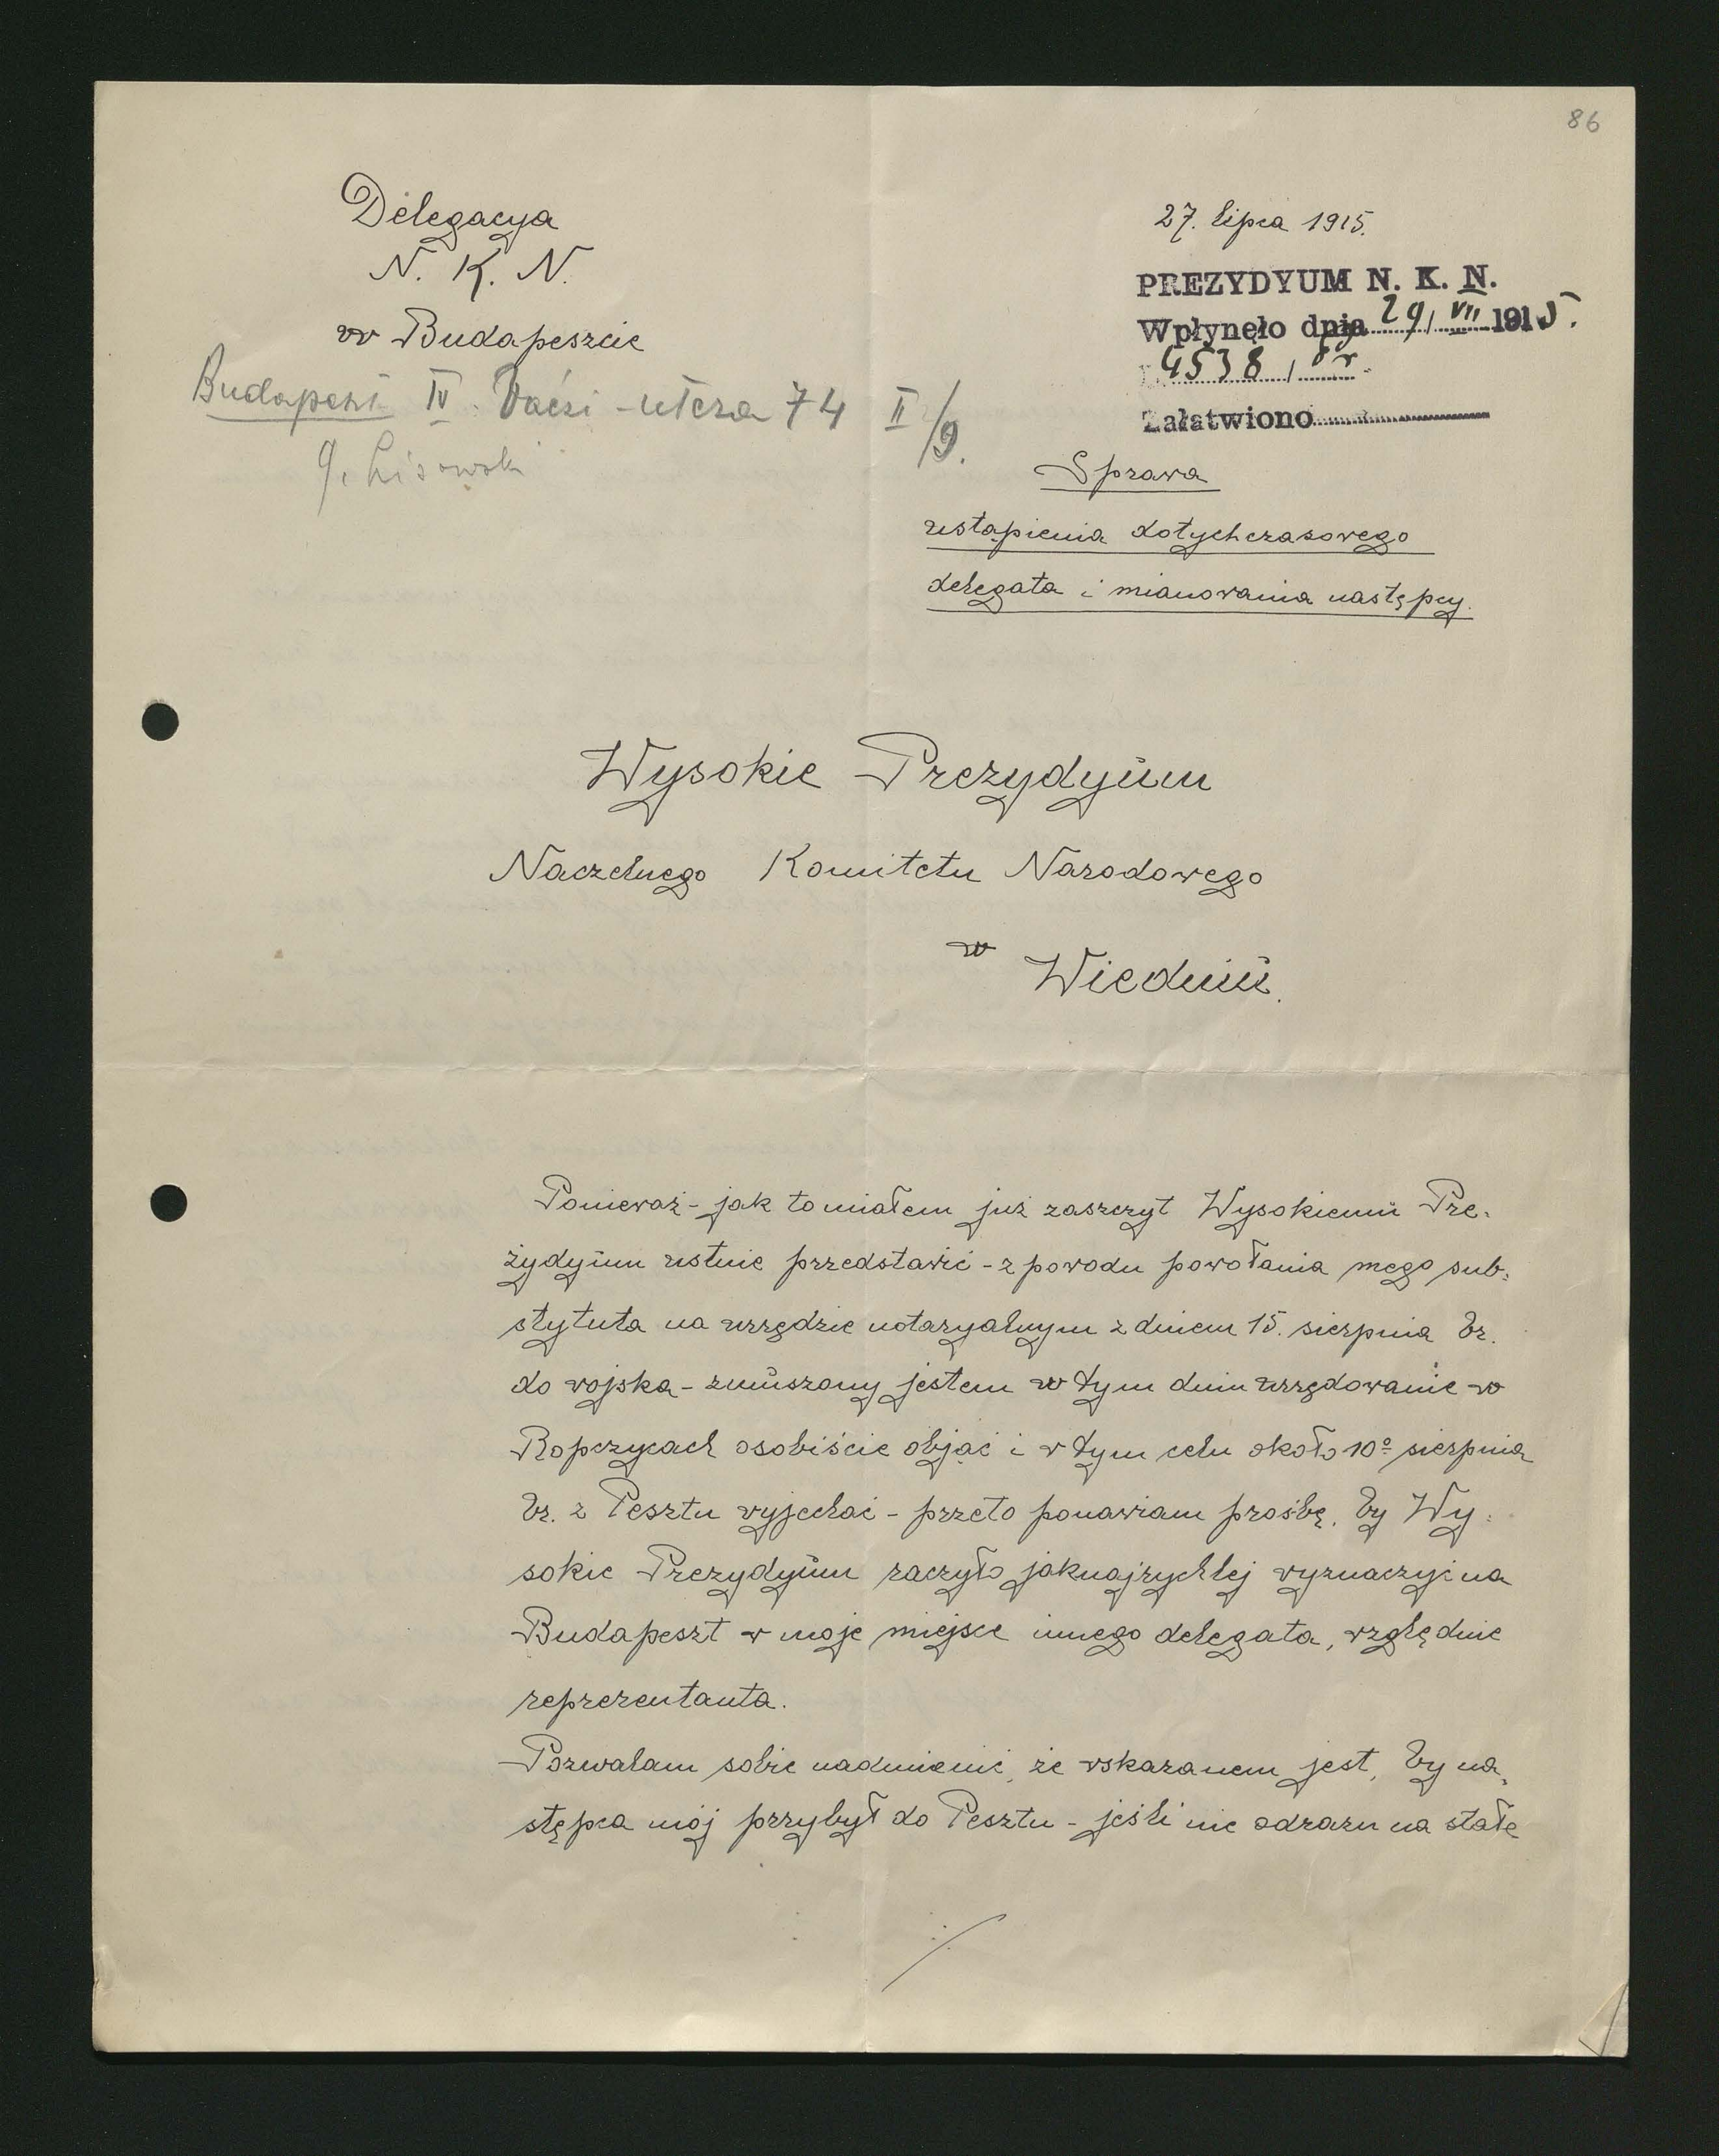 86
Delegacya
N. K. N.
w Budapeszcie
Budapeszt IV. Váczi-utcza 74 II/9.
G. Lisowski
27. lipca 1915.
PREZYDYUM N. K. N.
Wpłynęło dnia 29/VII 1915.
4538/
Załatwiono
Sprawa
ustąpienia dotychczasowego
delegata i mianowania następcy.
Wysokie Prezydyum
Naczelnego Komitetu Narodowego
w
Wiedniu.
Ponieważ - jak to miałem już zaszczyt Wysokiemu Pre-
zydyum ustnie przedstawić - z powodu powołania mego sub-
stytuta na urzędzie notaryalnym z dniem 15. sierpnia br.
do wojska - zmuszony jestem w tym dniu urzędowanie w
Ropczycach osobiście objąć i w tym celu około 10º sierpnia
br. z Pesztu wyjechać - przeto ponawiam prośbę, by Wy-
sokie Prezydyum raczyło jaknajrychlej wyznaczyć na
Budapeszt w moje miejsce innego delegata, względnie
reprezentanta.
Pozwalam sobie nadmienić, że wskazanem jest, by na-
stępca mój przybył do Pesztu - jeśli nie odrazu na stałe
./.